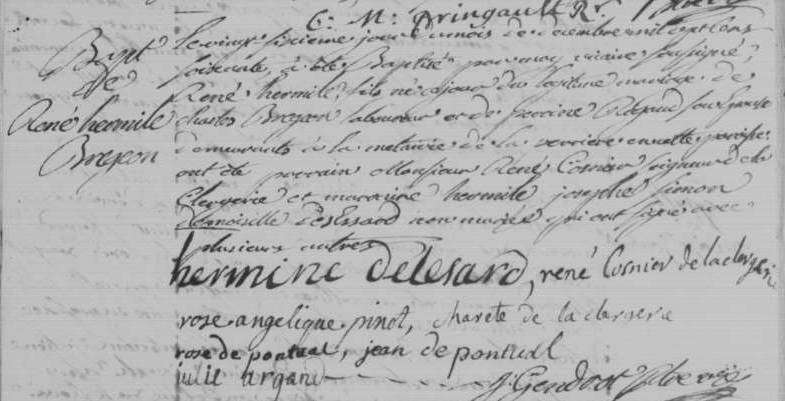 C. M. Pringault Rr.
Bapt
de
René hermile
Brezon
Le vingt sixieme jour du mois de decembre mil sept cens
soixante a été Baptisé par moy vicaire soussigné,
René hermile, fils né ce jour du legitime mariage de
charles Brezon laboureur et de perrine Rigaud son epouse
demeurants à la metairie de la verriere en cette paroisse
ont été parrain Monsieur René Cornier seigneur de la
Clergerie et marraine hermile josephe simon
demoiselle desEssard non mariée qui ont signé avec
plusieurs autres
hermine delesard, rené Cornier de la clergerie
rose angelique pinot, charete de la clergerie
rose de pontual, jean de pontual
julie argand
J. Gendrot